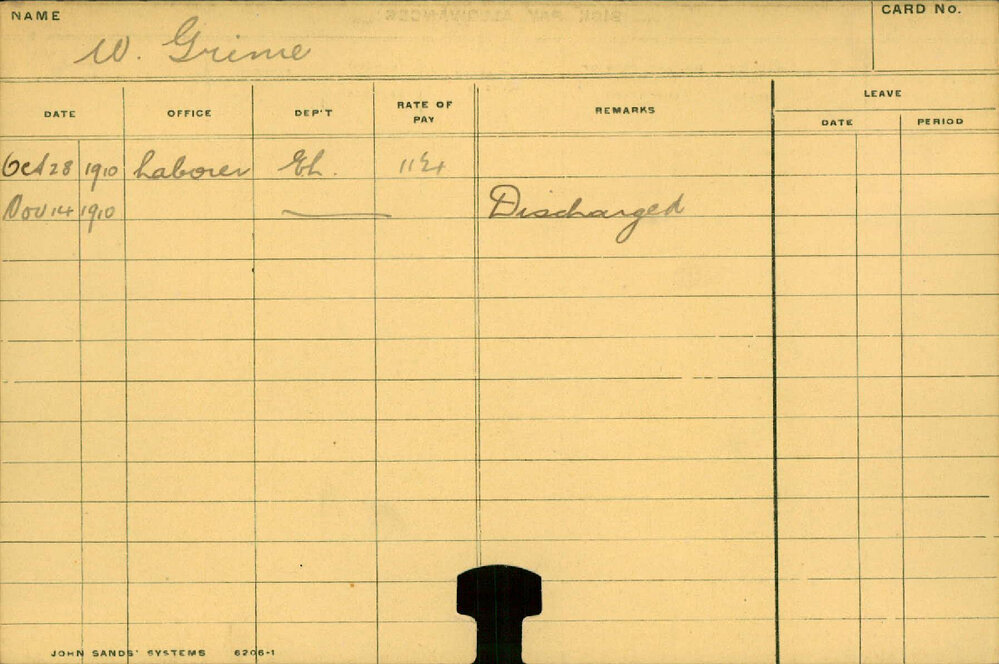 NAME W. Grime CARD NO.
DATE OFFICE DEP'T RATE OF PAY REMARKS LEAVE
DATE PERIOD
Oct 28 1910 Laborer El.
Nov 14 1910 Discharged
JOHN SANDS' SYSTEMS 6206-1